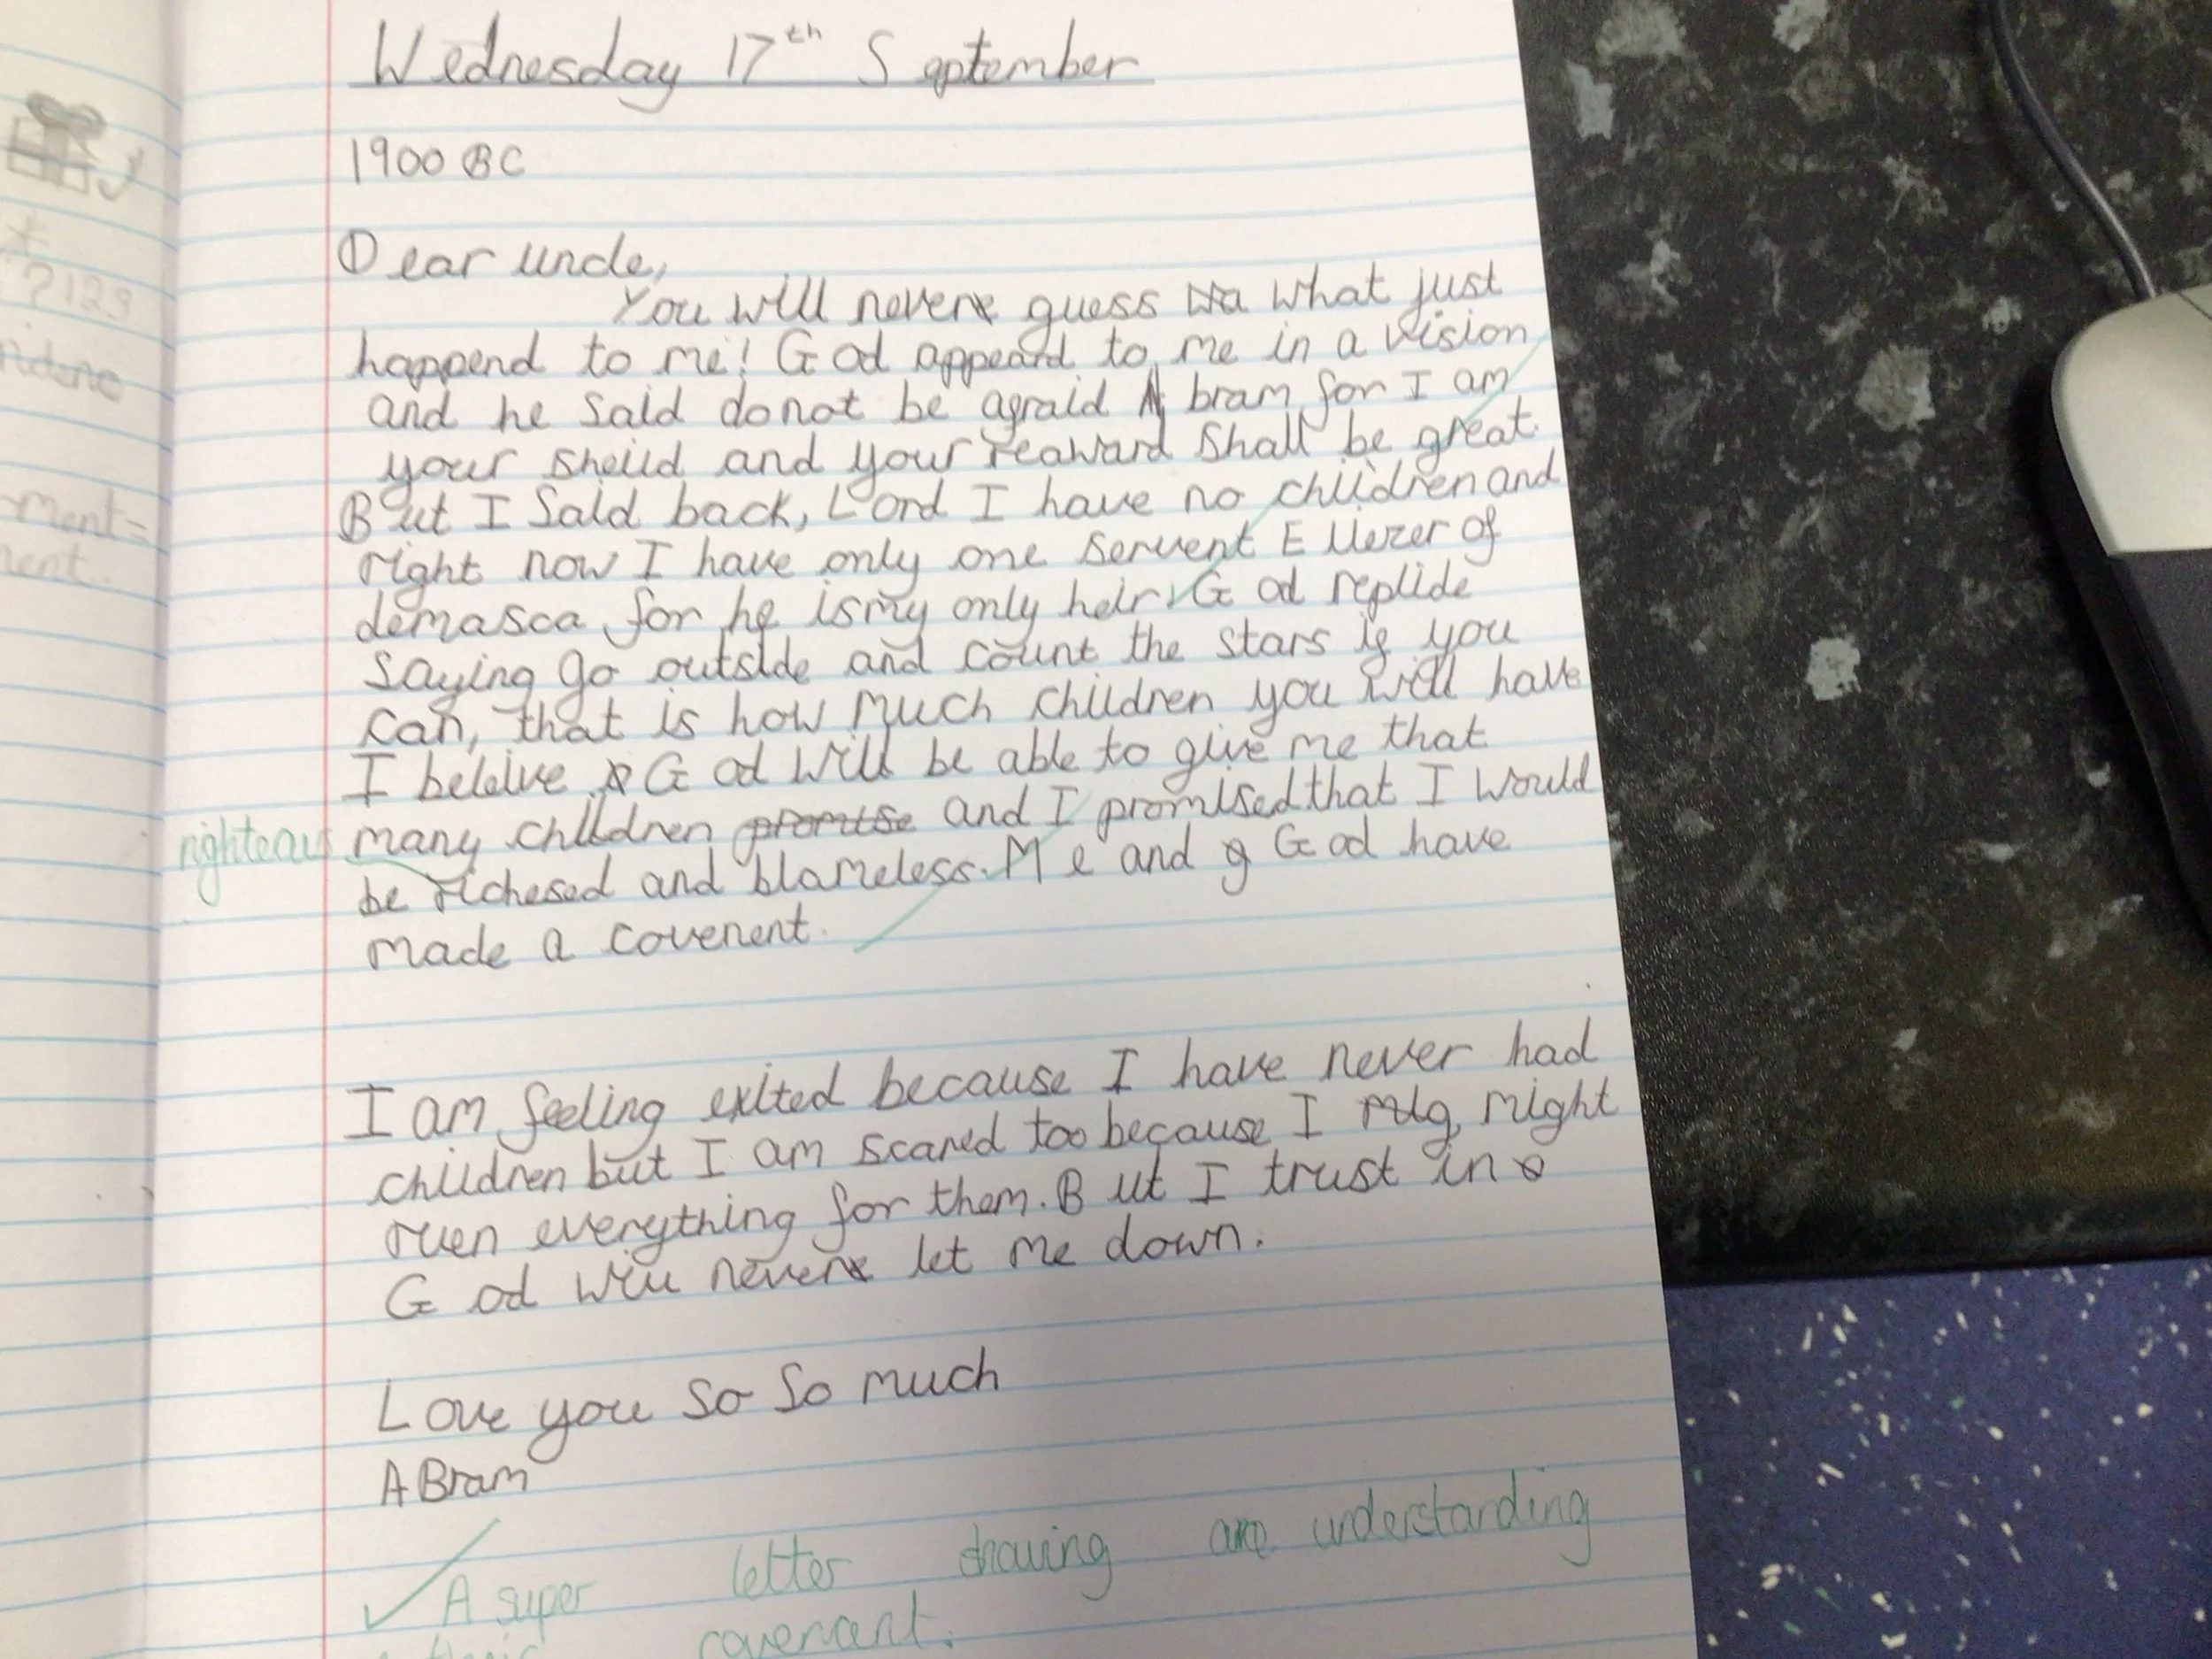 Wednesday 17th September
1900 BC
Dear uncle,
You will never guess wa what just
happend to me! God appeard to me in a vision
and he said do not be afraid Abram for I am
your sheild and your reaward shall be great.
But I said back, Lord I have no children and
right now I have only one servent Eliezer of
demasca for he is my only heir. God replide
saying go outside and count the stars if you
can, that is how much children you will have
I beleive God will be able to give me that
many children promise and I promised that I would
righteous
be richesed and blameless. Me and g God have
made a covenent.
I am feeling exited because I have never had
children but I am scared too because I mig might
ruen everything for them. But I trust in
God will never let me down.
Love you so so much
ABram
A super letter showing are understanding
covenant.
?129
ment=
ment.